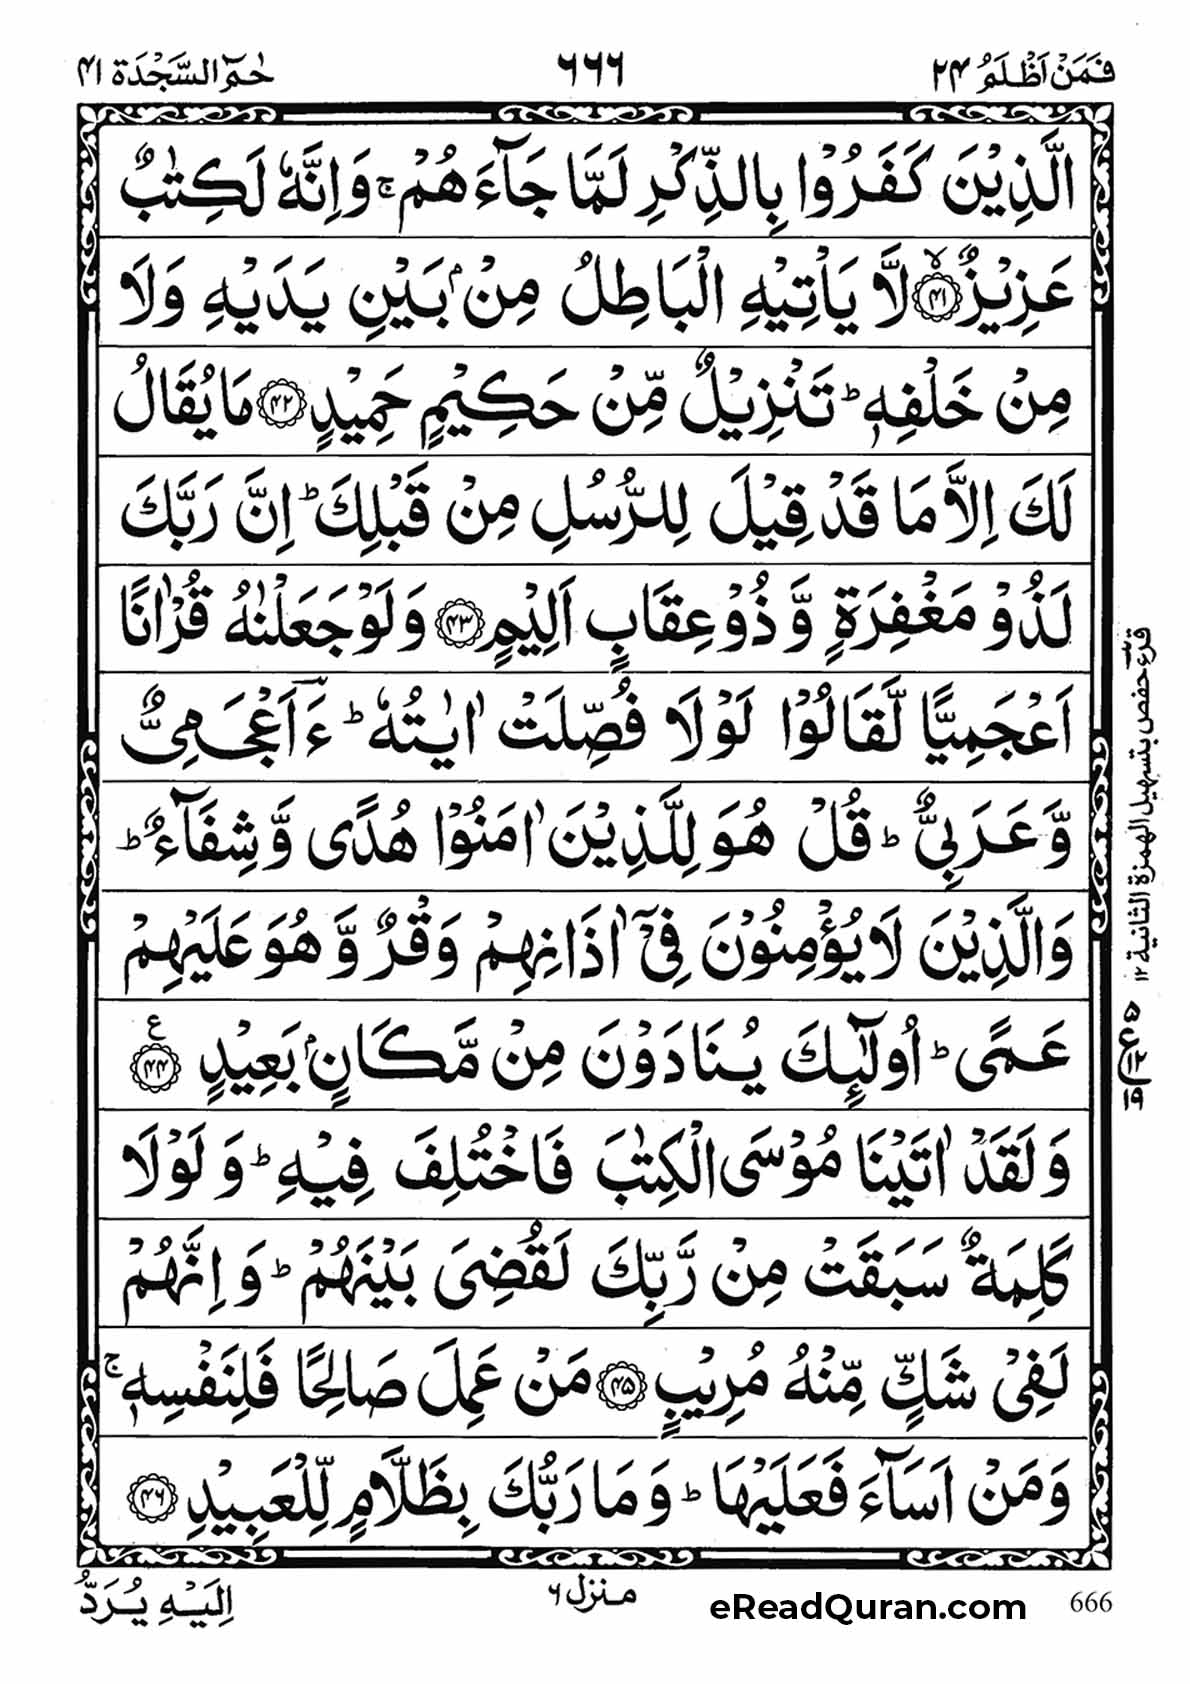 فَمَنْ اَظْلَمُ ۲۴ ۶۶۶ حٰمٓ السَّجْدَة ۴۱
الَّذِيْنَ كَفَرُوْا بِالذِّكْرِ لَمَّا جَآءَهُمْ ۚ وَاِنَّهٗ لَكِتٰبٌ
عَزِيْزٌ ۙ‏﴿۴۱﴾ لَّا يَاْتِيْهِ الْبَاطِلُ مِنْۢ بَيْنِ يَدَيْهِ وَلَا
مِنْ خَلْفِهٖ ؕ تَنْزِيْلٌ مِّنْ حَكِيْمٍ حَمِيْدٍ ﴿۴۲﴾ مَا يُقَالُ
لَكَ اِلَّا مَا قَدْ قِيْلَ لِلرُّسُلِ مِنْ قَبْلِكَ ؕ اِنَّ رَبَّكَ
لَذُوْ مَغْفِرَةٍ وَّذُوْ عِقَابٍ اَلِيْمٍ ﴿۴۳﴾ وَلَوْ جَعَلْنٰهُ قُرْاٰنًا
اَعْجَمِيًّا لَّقَالُوْا لَوْلَا فُصِّلَتْ اٰيٰتُهٗ ؕ ءَؔاَعْجَمِىٌّ
وَّعَرَبِىٌّ ؕ قُلْ هُوَ لِلَّذِيْنَ اٰمَنُوْا هُدًى وَّشِفَآءٌ ؕ
وَالَّذِيْنَ لَا يُؤْمِنُوْنَ فِىْۤ اٰذَانِهِمْ وَقْرٌ وَّهُوَ عَلَيْهِمْ
عَمًى ؕ اُولٰٓئِكَ يُنَادَوْنَ مِنْ مَّكَانٍۢ بَعِيْدٍ ﴿۴۴﴾ ع
وَلَقَدْ اٰتَيْنَا مُوْسَى الْكِتٰبَ فَاخْتُلِفَ فِيْهِ ؕ وَلَوْلَا
كَلِمَةٌ سَبَقَتْ مِنْ رَّبِّكَ لَقُضِىَ بَيْنَهُمْ ؕ وَاِنَّهُمْ
لَفِىْ شَكٍّ مِّنْهُ مُرِيْبٍ ﴿۴۵﴾ مَنْ عَمِلَ صَالِحًا فَلِنَفْسِهٖ ۚ
وَمَنْ اَسَآءَ فَعَلَيْهَا ؕ وَمَا رَبُّكَ بِظَلَّامٍ لِّلْعَبِيْدِ ﴿۴۶﴾
قرءحفص بتسهيل الهمزة الثانية ۱۲
اِلَيْهِ يُرَدُّ
منزل ۶
eReadQuran.com
666